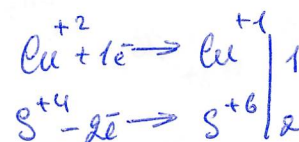 Cu⁺² + 1ē → Cu⁺¹ | 1
S⁺⁴ - 2ē → S⁺⁶ | 2